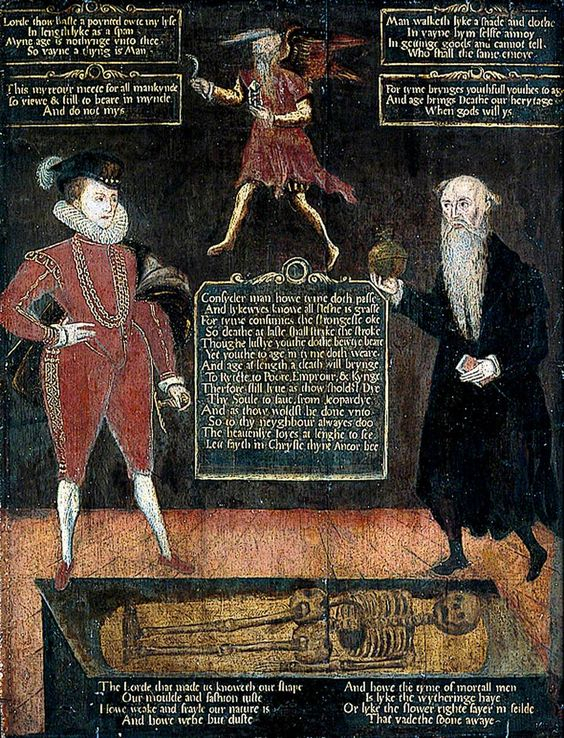 Lorde thow haste a poynted owte my lyfe
In lengthe lyke as a span
Myne age is nothynge vnto thee
So vayne a thyng is Man
This myrrour meete for all mankynde
so viewe & still to beare in mynde
And do not mys
Man walketh lyke a shade and dothe
In vayne hym selffe annoy
In gettinge goods and cannot tell
Who shall the same enioye
For tyme brynges youthfull youthes to age
And age brings Deathe our herytage
When gods will ys
Consyder man howe tyme doth passe
And lykewyes knowe all fleshe is grasse
For tyme consumes the strongeste oke
So deathe at laste shall stryke the stroke
Thoughe lustye youthe dothe bewtye beare
Yet youthe to age in tyme doth weare
And age at length a death will brynge
To Ryche to Poore, Emprour, & Kynge
Therfore still lyue as thow sholdst Dye
Thy Soule to saue, from Jeopardye
And as thow woldst be done vnto
So to thy neyghbour alwayes doo
The heauenlye Joyes at lenghe to see
Lett fayth in Chryste thyne Ancor bee
The Lorde that made us knoweth our shape
Our moulde and fashion iuste
Howe weake and frayle our nature is
And howe webe but duste
And howe the tyme of mortall men
Is lyke the wytheringe haye
Or lyke the flower righte fayer in feilde
That vadethe soone awaye